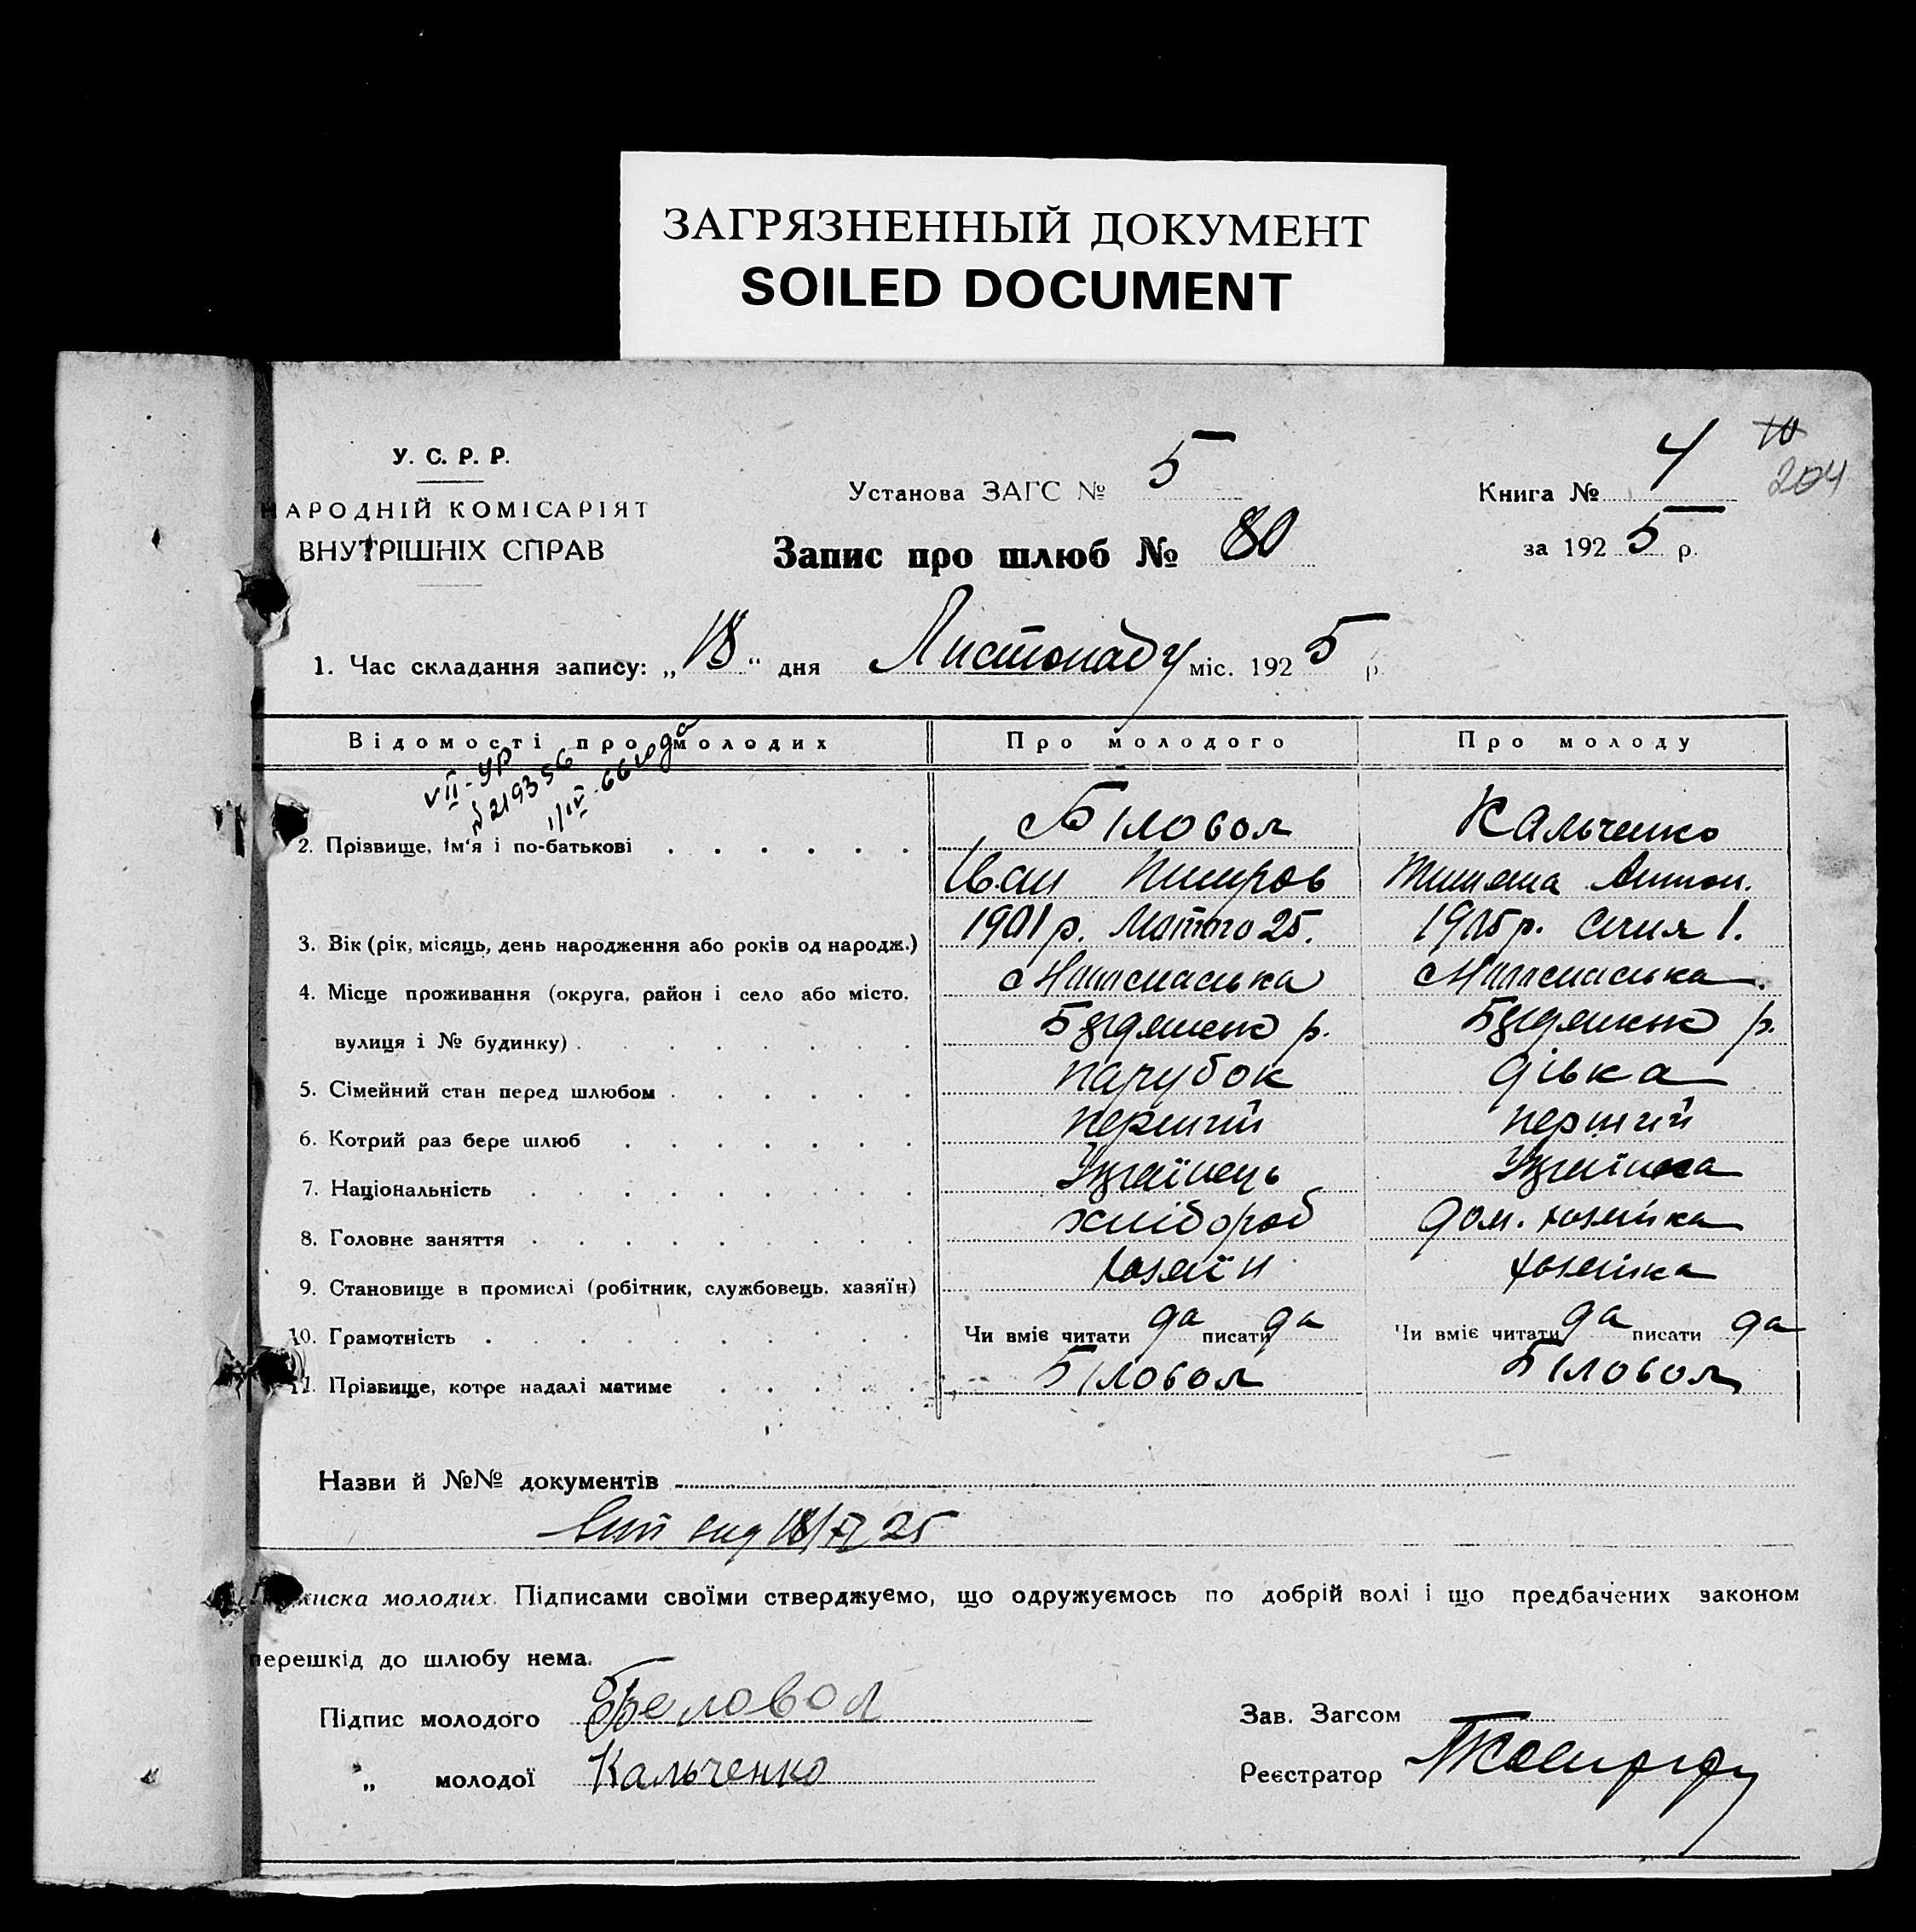 ЗАГРЯЗНЕННЫЙ ДОКУМЕНТ
SOILED DOCUMENT
У. С. Р. Р.
НАРОДНІЙ КОМІСАРІЯТ
ВНУТРІШНІХ СПРАВ
Установа ЗАГС № 5
Запис про шлюб № 80
Книга № 4
10
204
за 1925 р.
1. Час складання запису: „18“ дня Листопаду міс. 1925 р.
Відомості про молодих Про молодого Про молоду
VII-УР
№219356
1/IV-66 года
2. Прізвище, ім'я і по-батькові Біловол Кальченко
Іван Петров Тетяна Антон.
3. Вік (рік, місяць, день народження або років од народж.) 1901 р. Лютого 25. 1905 р. Січня 1.
4. Місце проживання (округа, район і село або місто,
вулиця і № будинку) р. р.
5. Сімейний стан перед шлюбом парубок дівка
6. Котрий раз бере шлюб перший перший
7. Національність Українець Українка
8. Головне заняття хлібороб дом. хозяйка
9. Становище в промислі (робітник, службовець, хазяїн) хозяїн хозяйка
10. Грамотність Чи вміє читати да писати да Чи вміє читати да писати да
11. Прізвище, котре надалі матиме Біловол Біловол
Назви й №№ документів
25
Підписка молодих. Підписами своїми стверджуємо, що одружуємось по добрій волі і що предбачених законом
перешкід до шлюбу нема.
Підпис молодого Беловол
„ молодої Кальченко
Зав. Загсом
Реєстратор